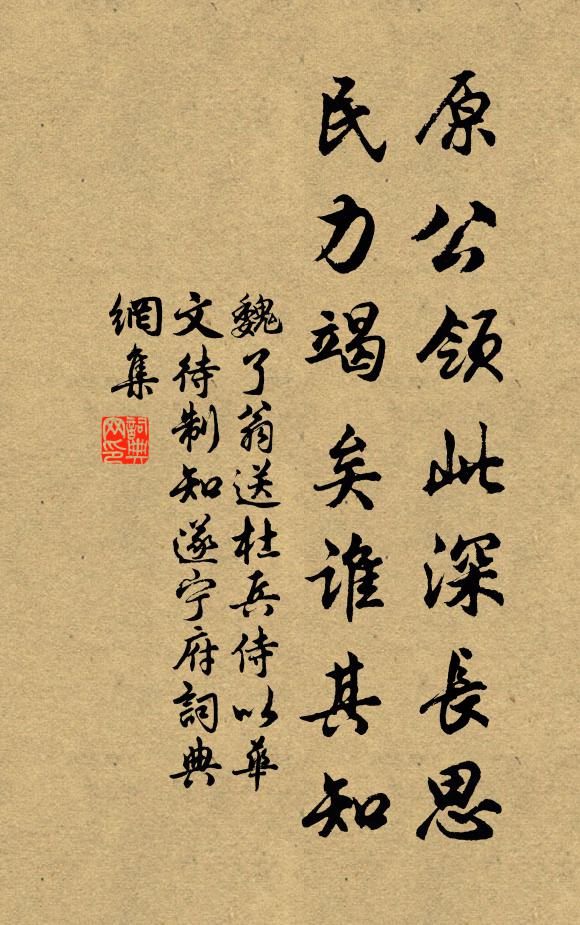 原公領此深長思
民力竭矣誰其知
魏了翁送杜兵侍以華
文待制知遂宁府詞典
網集
詞典
网印